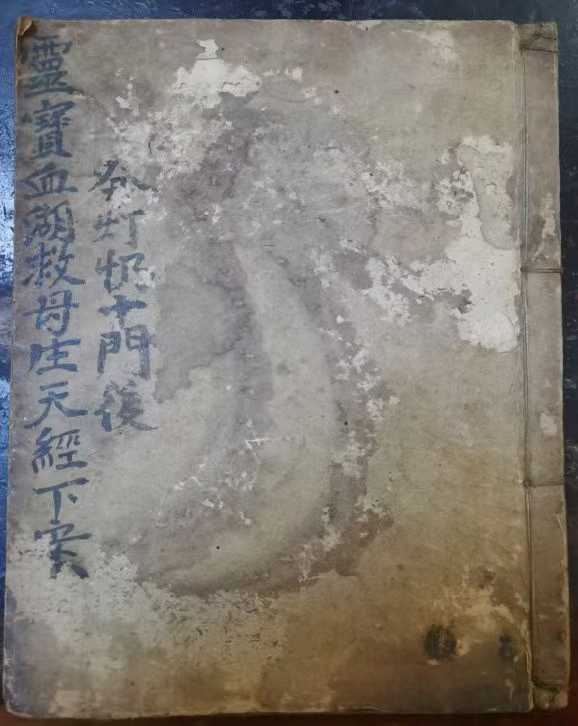 分灯十門後
靈寶血湖救母生天經下案